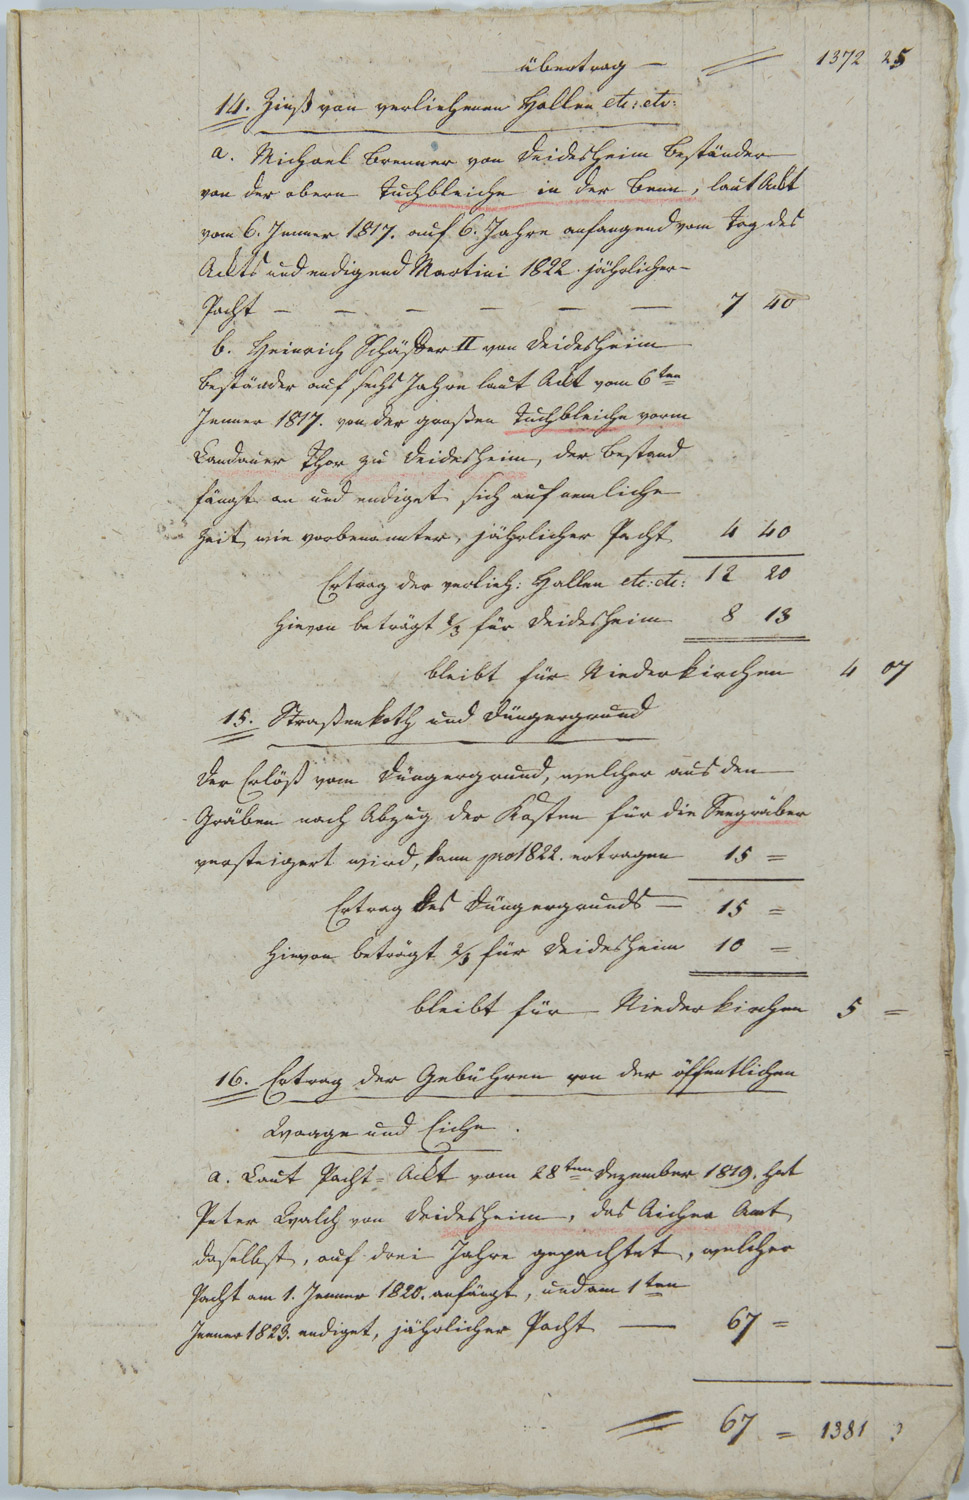 übertrag — 1372 25
14. Zinß von verliehenen Hallen etc: etc:
a. Michael Brenner von Deidesheim Beständer
von der obern Tuchbleiche in der Benn, laut Ackt
vom 6. Jenner 1817. auf 6. Jahre anfangend vom Tag des
Ackts und endigend Martini 1822. jährlicher
Pacht — — — — — — 7 40
b. Heinrich Schäffer II von Deidesheim
Beständer auf sechs Jahre laut Ackt vom 6ten
Jenner 1817. von der großen Tuchbleiche vorm
Landauer Thor zu Deidesheim, der Bestand
fängt an und endiget sich auf nemliche
Zeit wie vorbenannter, jährlicher Pacht 4 40
Ertrag der verlieh: Hallen etc: etc: 12 20
Hievon beträgt 2/3 für Deidesheim 8 13
bleibt für Niederkirchen 4 07
15. Straßenkoth und Düngergrund
Der Erlöß vom Düngergrund, welcher aus den
Gräben nach Abzug der Kosten für die Seegräber
versteigert wird, kann pro 1822. ertragen 15 =
Ertrag des Düngergrunds — 15 =
Hievon beträgt 2/3 für Deidesheim 10 =
bleibt für Niederkirchen 5 =
16. Ertrag der Gebühren von der öffentlichen
Waage und Eiche.
a. Laut Pacht-Ackt vom 28ten Dezember 1819. hat
Peter Walch von Deidesheim, das Aicher Amt
daselbst, auf drei Jahre gepachtet, welcher
Pacht am 1. Jenner 1820. anfängt, und am 1ten
Jenner 1823. endiget, jährlicher Pacht — 67 =
67 = 1381